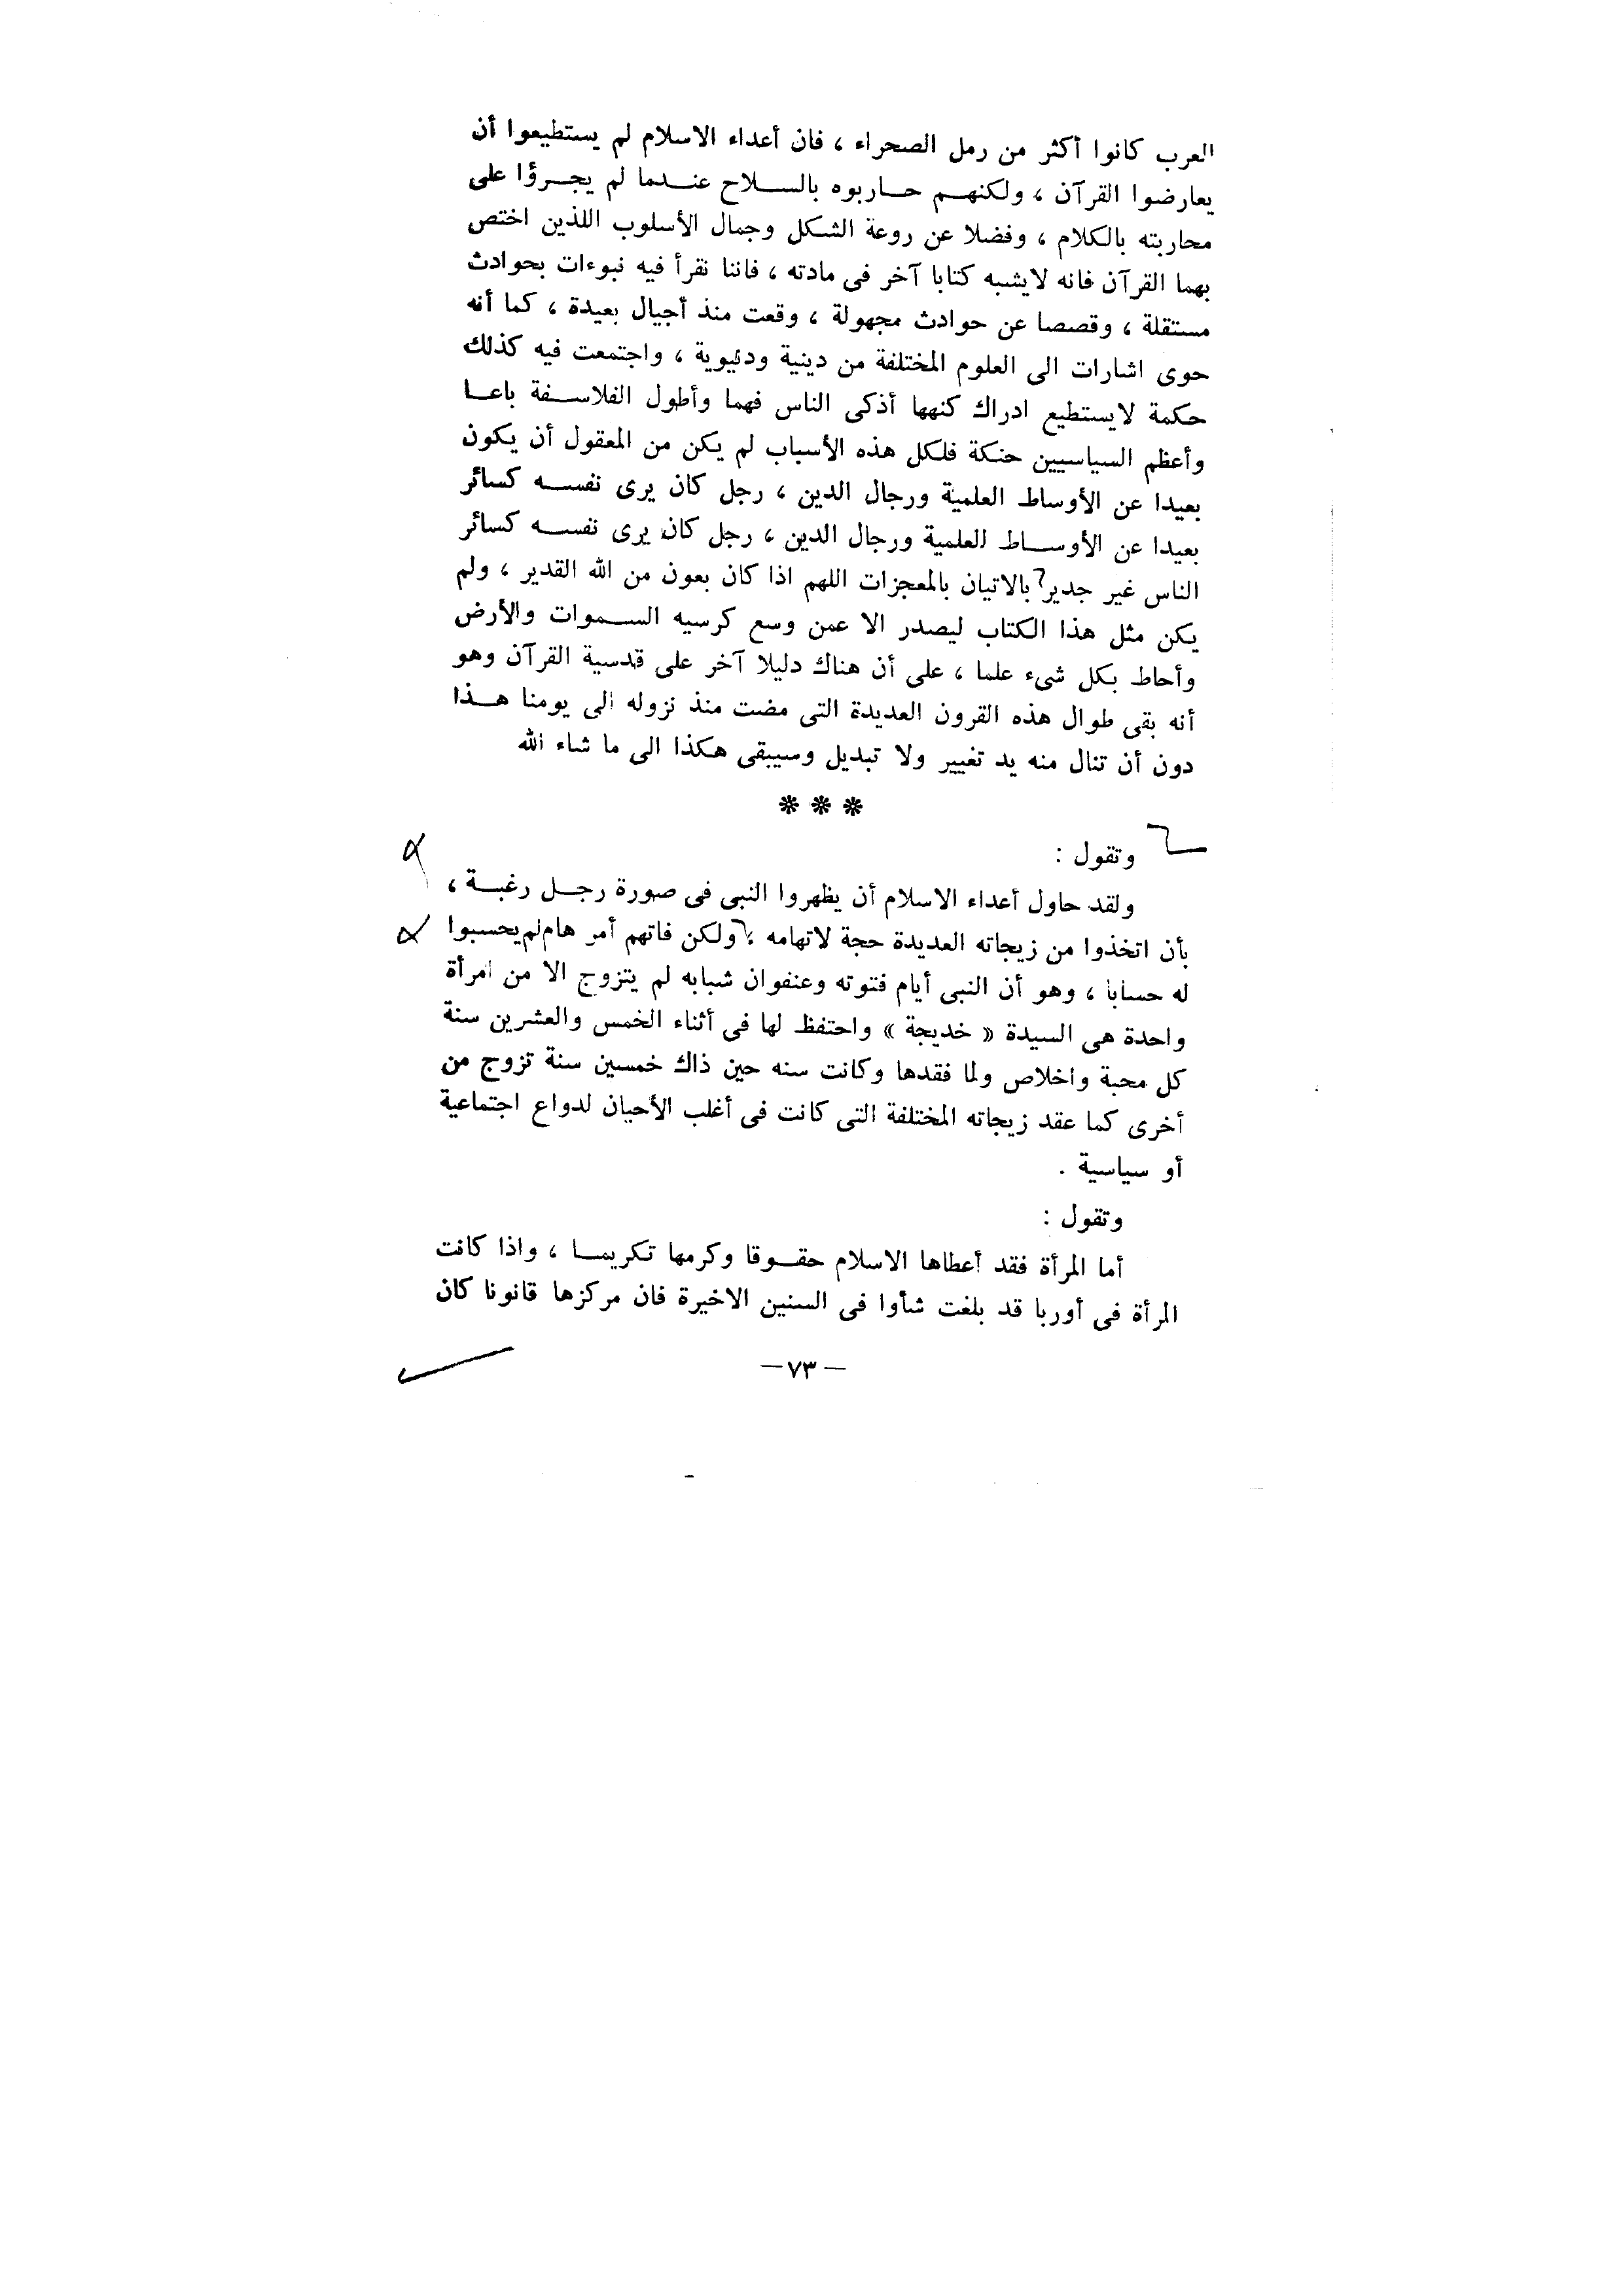 العرب كانوا أكثر من رمل الصحراء ، فان أعداء الاسلام لم يستطيعوا أن
يعارضوا القرآن ، ولكنهم حاربوه بالسلاح عندما لم يجرؤا على
محاربته بالكلام ، وفضلا عن روعة الشكل وجمال الأسلوب اللذين اختص
بهما القرآن فانه لايشبه كتابا آخر فى مادته ، فاننا نقرأ فيه نبوءات بحوادث
مستقلة ، وقصصا عن حوادث مجهولة ، وقعت منذ أجيال بعيدة ، كما أنه
حوى اشارات الى العلوم المختلفة من دينية ودنيوية ، واجتمعت فيه كذلك
حكمة لايستطيع ادراك كنهها أذكى الناس فهما وأطول الفلاسفة باعا
وأعظم السياسيين حنكة فلكل هذه الأسباب لم يكن من المعقول أن يكون
بعيدا عن الأوساط العلمية ورجال الدين ، رجل كان يرى نفسه كسائر
بعيدا عن الأوساط العلمية ورجال الدين ، رجل كان يرى نفسه كسائر
الناس غير جدير بالاتيان بالمعجزات اللهم اذا كان بعون من الله القدير ، ولم
يكن مثل هذا الكتاب ليصدر الا عمن وسع كرسيه السموات والأرض
وأحاط بكل شىء علما ، على أن هناك دليلا آخر على قدسية القرآن وهو
أنه بقى طوال هذه القرون العديدة التى مضت منذ نزوله الى يومنا هذا
دون أن تنال منه يد تغيير ولا تبديل وسيبقى هكذا الى ما شاء الله
***
وتقول :
ولقد حاول أعداء الاسلام أن يظهروا النبى فى صورة رجل رغبة ،
بأن اتخذوا من زيجاته العديدة حجة لاتهامه ، ولكن فاتهم أمر هام لم يحسبوا
له حسابا ، وهو أن النبى أيام فتوته وعنفوان شبابه لم يتزوج الا من امرأة
واحدة هى السيدة « خديجة » واحتفظ لها فى أثناء الخمس والعشرين سنة
كل محبة واخلاص ولما فقدها وكانت سنه حين ذاك خمسين سنة تزوج من
أخرى كما عقد زيجاته المختلفة التى كانت فى أغلب الأحيان لدواع اجتماعية
أو سياسية .
وتقول :
أما المرأة فقد أعطاها الاسلام حقوقا وكرمها تكريما ، واذا كانت
المرأة فى أوربا قد بلغت شأوا فى السنين الاخيرة فان مركزها قانونا كان
— ٧٣ —